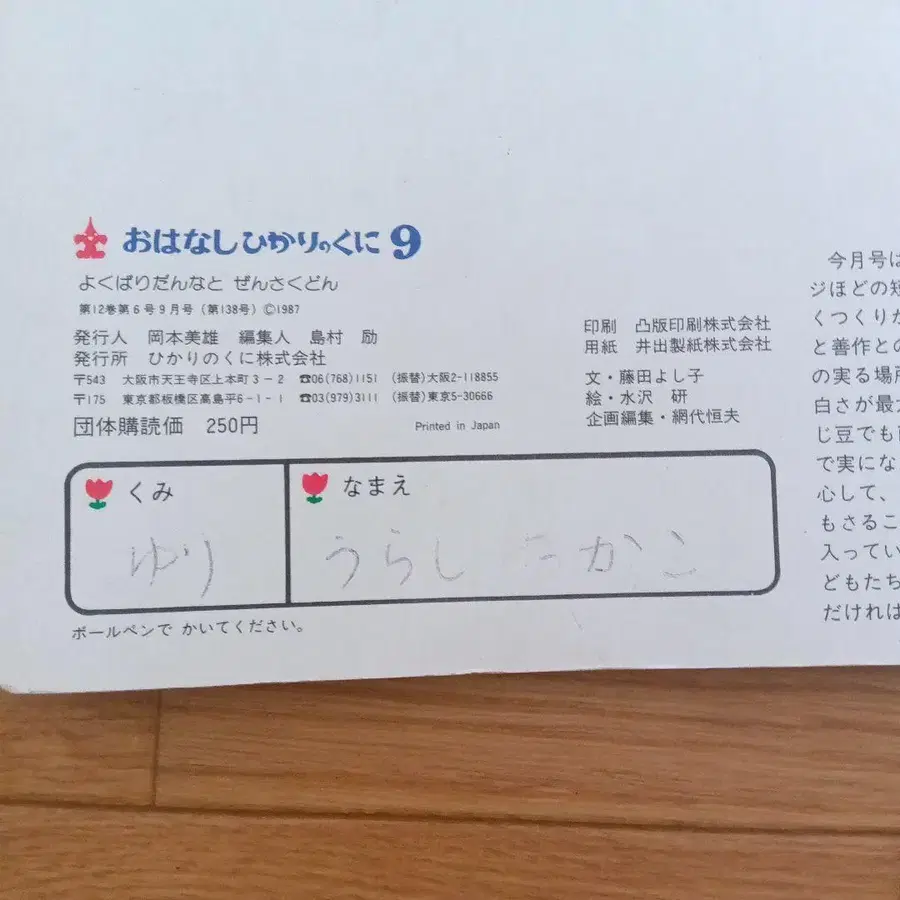 おはなしひかりのくに 9
よくばりだんなと ぜんさくどん
第12巻第6号9月号（第138号）©1987
発行人 岡本美雄 編集人 島村 励
発行所 ひかりのくに株式会社
〒543 大阪市天王寺区上本町3－2 ☎06(768)1151 (振替)大阪2-118855
〒175 東京都板橋区高島平6－1－1 ☎03(979)3111 (振替)東京5-30666
団体購読価 250円
Printed in Japan
印刷 凸版印刷株式会社
用紙 井出製紙株式会社
文・藤田よし子
絵・水沢 研
企画編集・網代恒夫
くみ
ゆり
なまえ
うらし たかこ
ボールペンで かいてください。
今月号は
ジほどの短
くつくりか
と善作との
の実る場所
白さが最大
じ豆でも
で実にな
心して、
もさるこ
入ってい
どもたち
だければ